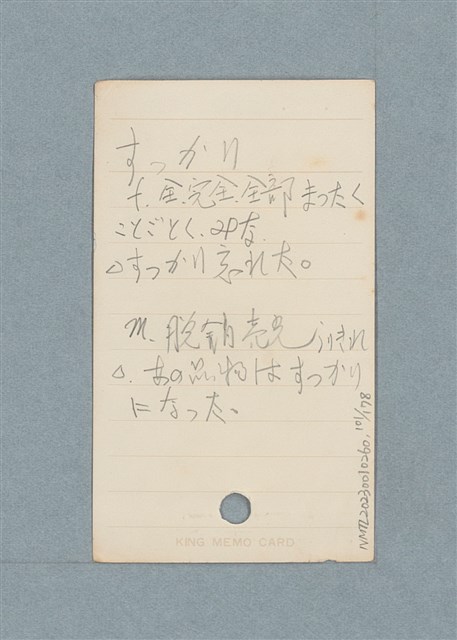 すっかり
f. 全、完全、全部 まったく
ことごとく、みな
△すっかり忘れた。
m. 脱銷 売光 うりきれ
△. あの品物はすっかり
になった。
KING MEMO CARD
NMTL20230010260, 101/178